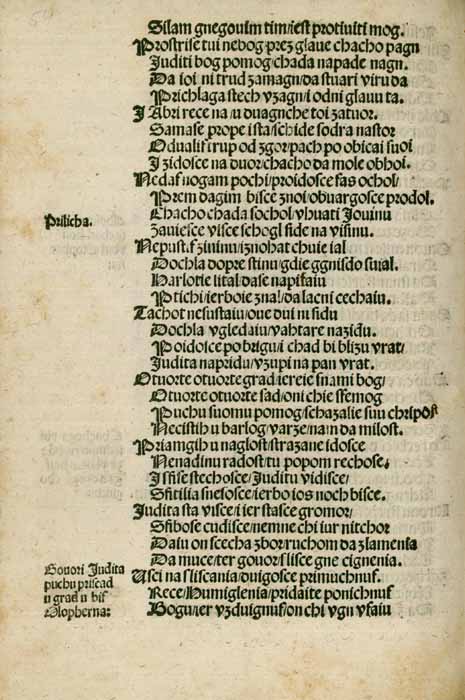 Silam gnegouim tim/iest protiuiti mog.
Prostrise tui nebog/prez glaue chacho pagn
Juditi bog pomog/chada napade nagn.
Da ioi ni trud zamagn/da stuari viru da
Prichlaga stech vzagn/i odni glauu ta.
J Abri rece na/u duagnche toi zatuor.
Samase prope ista/schide sodra nastor
Odualif trup od zgor/pach po obicai suoi
Jzidosce na duor/chacho da mole obhoi.
Nedaf nogam pochi/proidosce fas ochol/
Prem dagim bisce znoi/obuargosce prodol.
Prilicha.
Chacho chada sochol/vhuati Jouinu
Zauiesce visce schogl side na visinu.
Nepust.f zininu/iznohat chuie ial
Dochla dopre stinu/gdie ggnisdo suial.
Harlotie lital/dase napitaiu
Ptichi/ierboie znal/da lacni cechaiu.
Tachot nesustaiu/oue dui ni sidu
Dochla vgledaiu/vahtare nazidu.
Poidosce po brigu/i chad bi blizu vrat/
Judita napridu/vzupi na pan vrat.
Otuorte otuorte grad/iereie snami bog/
Otuorte otuorte sad/oni chie sfemog
Puchu suomu pomog/schazalie suu
Necistih u barlog/varze/na'n da milost.
Priamgih u naglost/strazane idosce
Nenadinu radost/tu popom rechose.
Jsfise stechosce/Juditu vidisce/
Sfitilia snesosce/ierbo ios noch bisce.
Judita sta visce/i ier stasce gromor/
Sfibose cudisce/nemne chi iur nitchor
Daiu on scecha zbor/ruchom da zlamenia
Da muce/ter gouor/slisce gne cignenia.
Gouori Judita
puchu priscad
u grad u bif
Olopherna:
Usci na sliscania/duigosce primuchnuf.
Rece/Humiglenia/pridaite ponichnuf
Bogu/ier vzduignuf/on chi vgn vfaiu